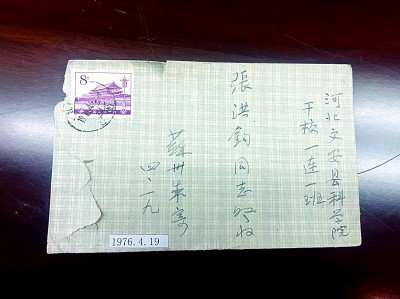 河北文安县科学院
干校一连一班
張洪鈞同志收
蘇州朱寄
四.一九
8分
1976.4.19